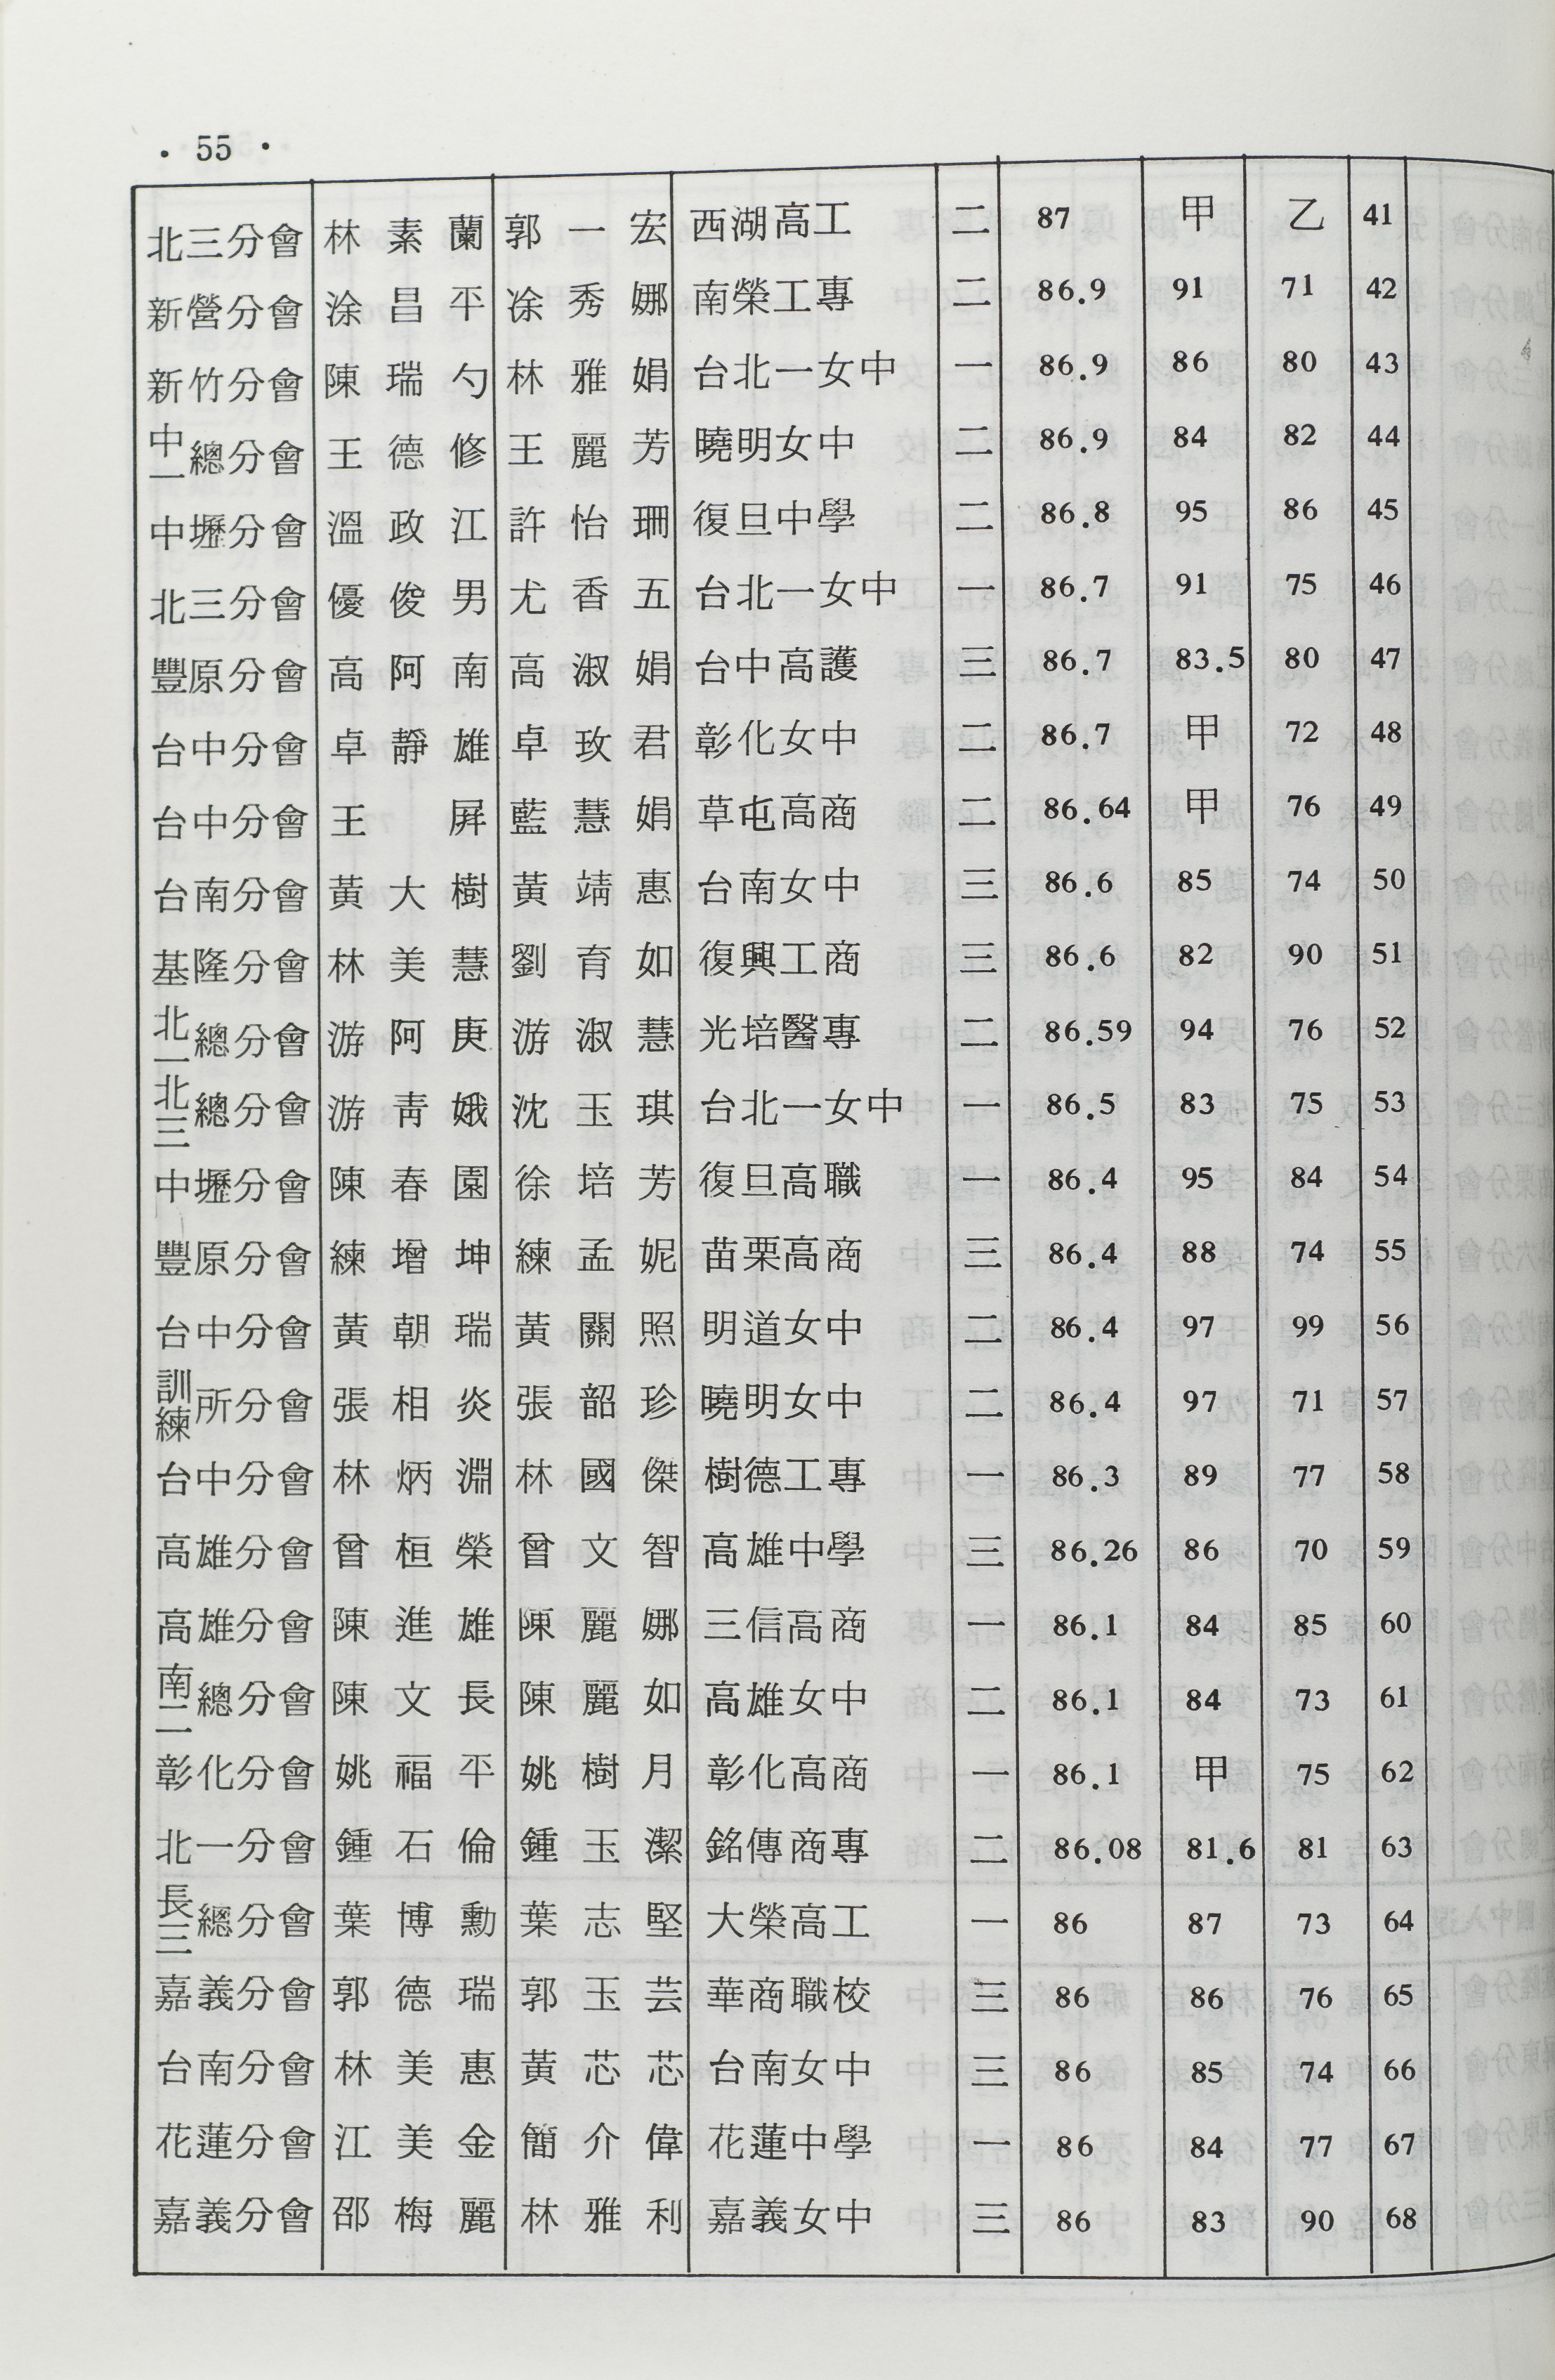 · 55 ·
北三分會 林素蘭 郭一宏 西湖高工 二 87 甲 乙 41
新營分會 涂昌平 凃秀娜 南榮工專 二 86.9 91 71 42
新竹分會 陳瑞勺 林雅娟 台北一女中 一 86.9 86 80 43
中一總分會 王德修 王麗芳 曉明女中 二 86.9 84 82 44
中壢分會 溫政江 許怡珊 復旦中學 二 86.8 95 86 45
北三分會 優俊男 尤香五 台北一女中 一 86.7 91 75 46
豐原分會 高阿南 高淑娟 台中高護 三 86.7 83.5 80 47
台中分會 卓靜雄 卓玫君 彰化女中 二 86.7 甲 72 48
台中分會 王屏 藍慧娟 草屯高商 二 86.64 甲 76 49
台南分會 黃大樹 黃靖惠 台南女中 三 86.6 85 74 50
基隆分會 林美慧 劉育如 復興工商 三 86.6 82 90 51
北一總分會 游阿庚 游淑慧 光培醫專 二 86.59 94 76 52
北三總分會 游靑娥 沈玉琪 台北一女中 一 86.5 83 75 53
中壢分會 陳春園 徐培芳 復旦高職 一 86.4 95 84 54
豐原分會 練增坤 練孟妮 苗栗高商 三 86.4 88 74 55
台中分會 黃朝瑞 黃關照 明道女中 二 86.4 97 99 56
訓練所分會 張相炎 張韶珍 曉明女中 二 86.4 97 71 57
台中分會 林炳淵 林國傑 樹德工專 一 86.3 89 77 58
高雄分會 曾桓榮 曾文智 高雄中學 三 86.26 86 70 59
高雄分會 陳進雄 陳麗娜 三信高商 一 86.1 84 85 60
南二總分會 陳文長 陳麗如 高雄女中 二 86.1 84 73 61
彰化分會 姚福平 姚樹月 彰化高商 一 86.1 甲 75 62
北一分會 鍾石倫 鍾玉潔 銘傳商專 二 86.08 81.6 81 63
長三總分會 葉博勳 葉志堅 大榮高工 一 86 87 73 64
嘉義分會 郭德瑞 郭玉芸 華商職校 三 86 86 76 65
台南分會 林美惠 黃芯芯 台南女中 三 86 85 74 66
花蓮分會 江美金 簡介偉 花蓮中學 一 86 84 77 67
嘉義分會 邵梅麗 林雅利 嘉義女中 三 86 83 90 68